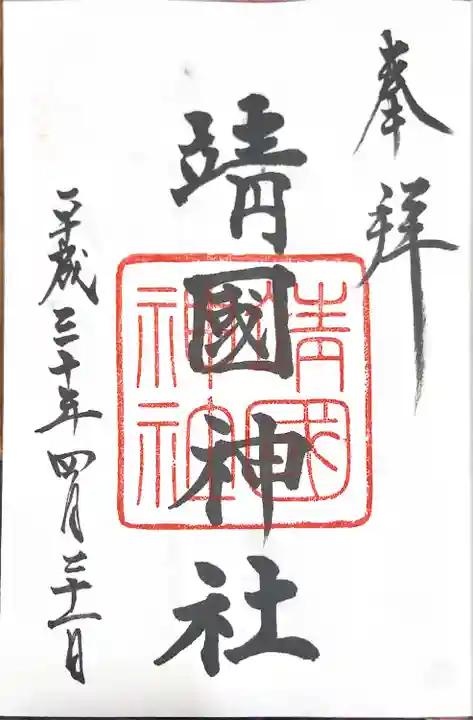 奉拝
靖國神社
靖國
神社
平成三十年四月二十一日